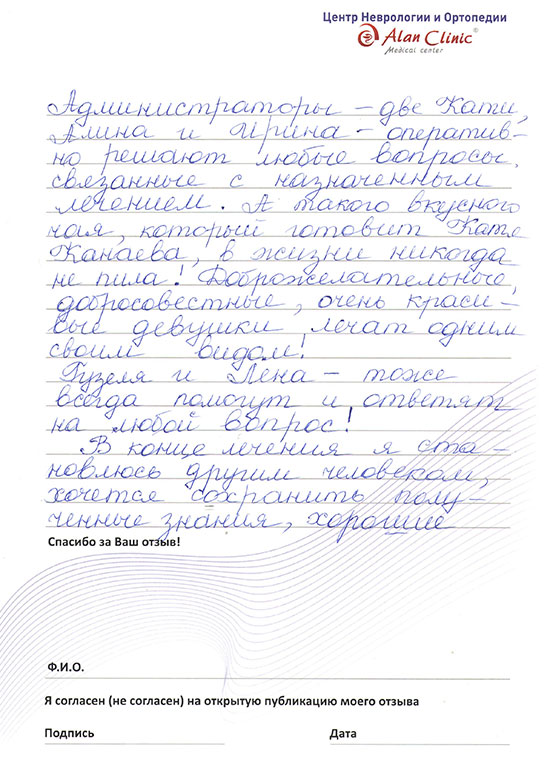 Центр Неврологии и Ортопедии
Alan Clinic®
Medical center
Администраторы – две Кати,
Алина и Ирина – оператив-
но решают любые вопросы,
связанные с назначенным
лечением. А такого вкусного
чая, который готовит Катя
Канаева, в жизни никогда
не пила! Доброжелательные,
добросовестные, очень краси-
вые девушки лечат одним
своим видом!
Гузеля и Лена – тоже
всегда помогут и ответят
на любой вопрос!
В конце лечения я ста-
новлюсь другим человеком,
хочется сохранить полу-
ченные знания, хорошие
Спасибо за Ваш отзыв!
Ф.И.О.
Я согласен (не согласен) на открытую публикацию моего отзыва
Подпись Дата